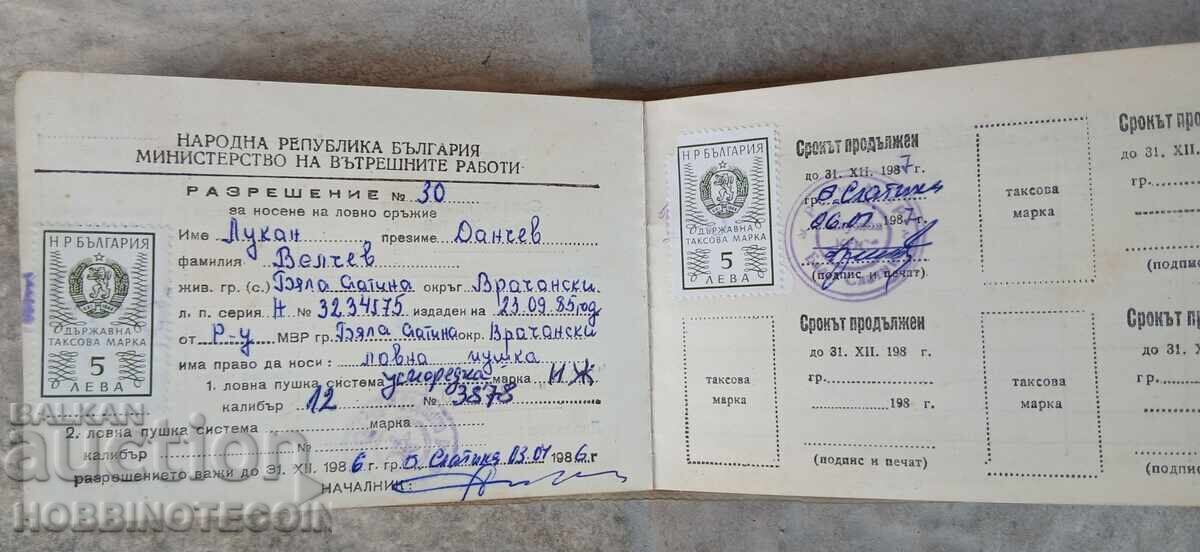 НАРОДНА РЕПУБЛИКА БЪЛГАРИЯ
МИНИСТЕРСТВО НА ВЪТРЕШНИТЕ РАБОТИ
РАЗРЕШЕНИЕ № 30
за носене на ловно оръжие
Име Лукан презиме Данчев
фамилия Велчев
жив. гр. (с.) Бяла Слатина окръг Врачански
л. п. серия А № 3234575 издаден на 23.09.85год
от Р-у МВР гр. Бяла Слатина окр. Врачански
има право да носи: ловна пушка
1. ловна пушка система успоредка марка ИЖ
калибър 12 № 3878
2. ловна пушка система марка
калибър №
разрешението важи до 31. XII. 1986 г. гр. Б. Слатина 03.01 1986 г
НАЧАЛНИК:
Н Р БЪЛГАРИЯ
ДЪРЖАВНА
ТАКСОВА МАРКА
5
ЛЕВА
Н Р БЪЛГАРИЯ
ДЪРЖАВНА
ТАКСОВА МАРКА
5
ЛЕВА
Срокът продължен
до 31. XII. 1987 г.
гр. Б. Слатина
06.01. 1987 г.
(подпис и печат)
таксова
марка
Срокът про
до 31. XII.
гр.
(подпи
таксова
марка
Срокът продължен
до 31. XII. 198 г.
гр.
198 г.
(подпис и печат)
таксова
марка
Срокът п
до 31. XII
гр.
(подп
BALKAN
auction
HOBBINOTECOIN